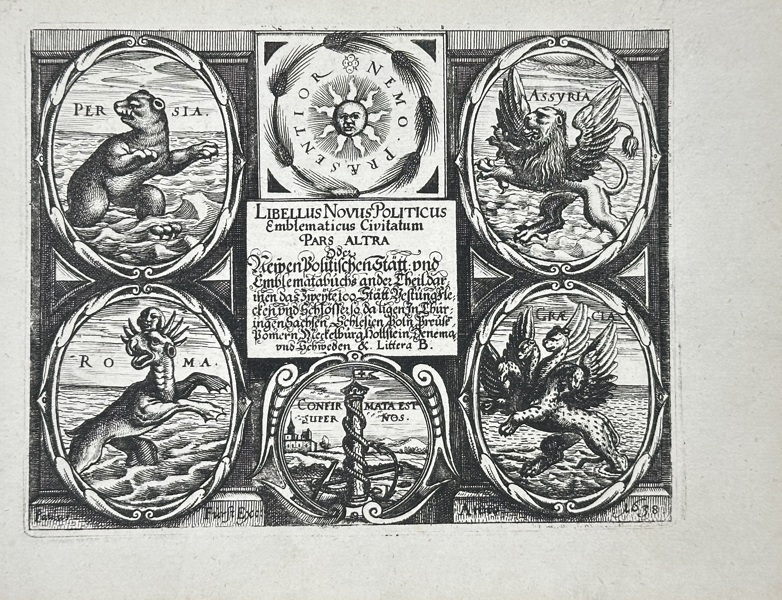 PERSIA.
NEMO PRÆSENTIOR
ASSYRIA
LIBELLUS NOVUS POLITICUS
Emblematicus Civitatum
PARS ALTRA
Oder
Newen Politischen Stätt- und
Emblematabuchs ander Theil dar-
innen das zweyte 100. Stätt Vestung Fle-
cken und Schlösser so da ligen In Thür-
ingen Sachsen Schlesien Poln Preuss
Pomern Meckelburg Hollstein Denema
und Schweden &. Littera B.
ROMA.
GRÆCIA
CONFIRMATA EST
SUPER NOS.
Fürst Exc:
1638